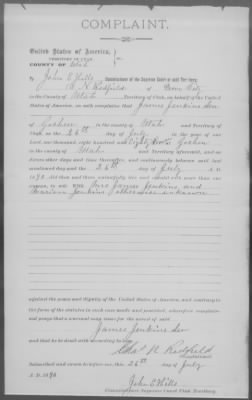 COMPLAINT.
United States of America,
TERRITORY OF UTAH,
COUNTY OF Utah
To John E Hills Commissioner of the Supreme Court of said Territory.
of
in the County of Utah Territory of Utah, on behalf of the United
States of America, on oath complains that James Jenkins Senr
of Goshen in the county of Utah and Territory of
Utah, on the 26th day of July in the year of our
Lord one thousand, eight hundred and Goshen
in the county of Utah and Territory aforesaid, and on
divers other days and times thereafter, and continuously between said
last mentioned day and the 26th day of July A. D.
1890 did then and there unlawfully live and cohabit with more than one
woman, to wit: with Mrs James Jenkins, and
Jenkins otherwise unknown
against the peace and dignity of the United States of America, and contrary to
the form of the statutes in such case made and provided, wherefore complain-
ant prays that a warrant may issue for the arrest of said
James Jenkins Senr
and that he be dealt with according to law.
Chas N Redfield
Subscribed and sworn to before me, this 26th day of July
A. D. 1890
John E Hills
Commissioner Supreme Court Utah Territory.